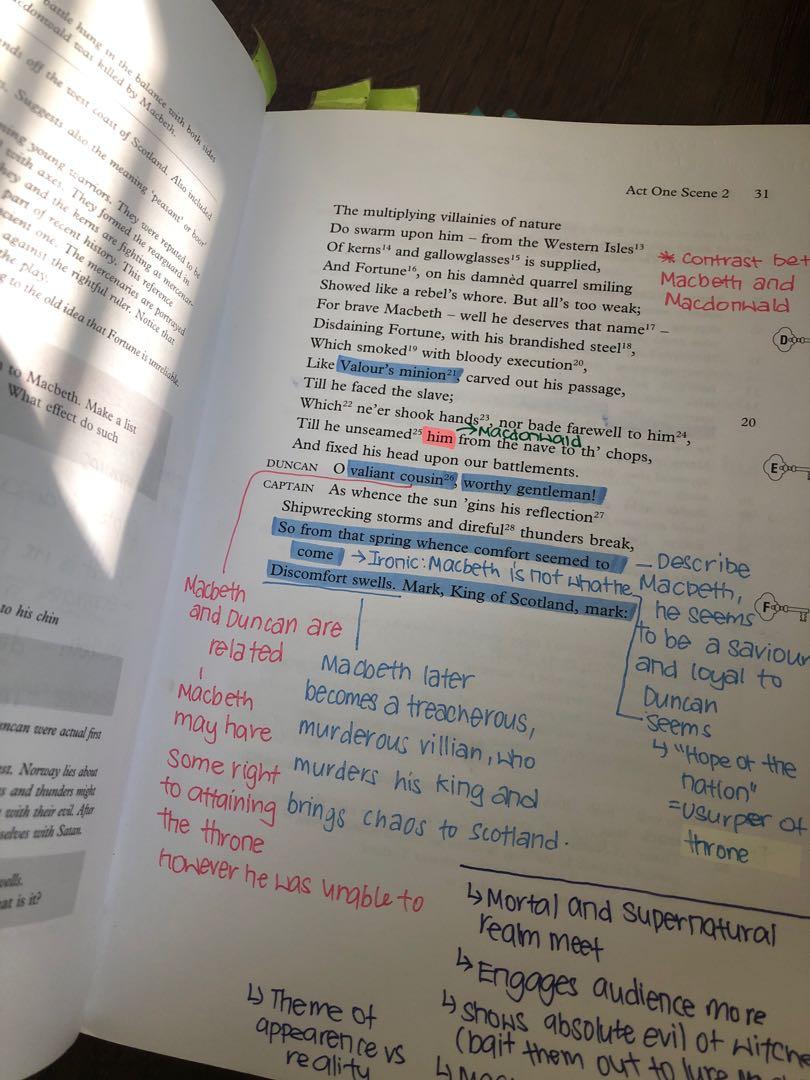 battle hung in the balance with both sides
donwald was killed by Macbeth.
nds off the west coast of Scotland. Also included
s. Suggests also the meaning 'peasant' or 'boor'
ning young warriors. They were reputed to be
with axes. They formed the rearguard in
hey and the kerns are fighting as mercenar-
part of recent history. This reference
ncient one. The mercenaries are portrayed
against the rightful ruler. Notice that
the play.
g to the old idea that Fortune is unreliable.
to Macbeth. Make a list
What effect do such
to his chin
ncan were actual first
est. Norway lies about
s and thunders might
with their evil. After
selves with Satan.
wells.
at is it?
Act One Scene 2 31
The multiplying villainies of nature
Do swarm upon him – from the Western Isles¹³
Of kerns¹⁴ and gallowglasses¹⁵ is supplied,
And Fortune¹⁶, on his damnèd quarrel smiling
Showed like a rebel's whore. But all's too weak;
For brave Macbeth – well he deserves that name¹⁷ –
Disdaining Fortune, with his brandished steel¹⁸,
Which smoked¹⁹ with bloody execution²⁰,
Like Valour's minion²¹, carved out his passage,
Till he faced the slave;
Which²² ne'er shook hands²³, nor bade farewell to him²⁴,
20
Till he unseamed²⁵ him from the nave to th' chops,
→Macdonwald
And fixed his head upon our battlements.
DUNCAN O valiant cousin²⁶, worthy gentleman!
CAPTAIN As whence the sun 'gins his reflection²⁷
Shipwrecking storms and direful²⁸ thunders break,
So from that spring whence comfort seemed to
come → Ironic: Macbeth is not what he
Discomfort swells. Mark, King of Scotland, mark:
* Contrast bet
Macbeth and
Macdonwald
D
E
F
– Describe
Macbeth,
he seems
to be a saviour
and loyal to
Duncan
seems
↳ "Hope of the
nation"
= usurper of
throne
Macbeth
and Duncan are
related
Macbeth
may have
some right
to attaining
the throne
however he was unable to
Macbeth later
becomes a treacherous,
murderous villian, who
murders his king and
brings chaos to scotland.
↳ Mortal and supernatural
realm meet
↳ Engages audience more
↳ shows absolute evil of witche
(bait them out to lure
↳ Theme of
appearence vs
reality